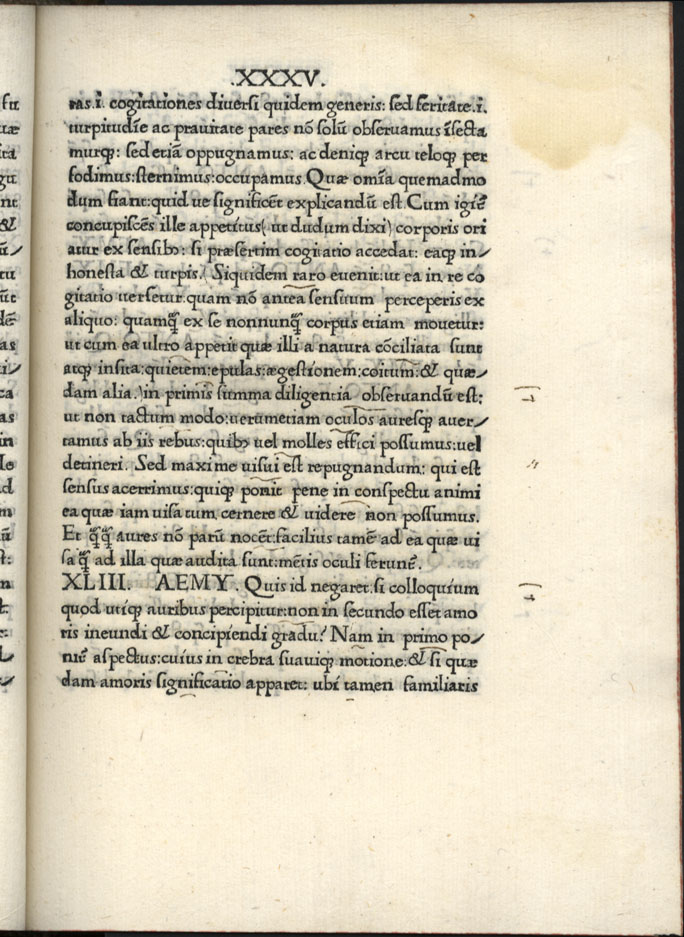 .XXXV.
ras.i. cogitationes diuersi quidem generis: sed feritate.i.
turpitudīe ac prauitate pares nō solū obseruamus īsecta
murqꝫ: sed etiā oppugnamus: ac deniqꝫ arcu teloqꝫ per
fodimus:sternimus:occupamus.Quæ omīa quemadmo
dum fiant:quid ue significēt explicandū est.Cum igiť
concupiscēs ille appetitus( ut dudum dixi) corporis ori
atur ex sensibꝫ: si præsertim cogitatio accedat: eaqꝫ in⸗
honesta & turpis.( Siquidem raro euenit:ut ea in re co
gitatio uersetur.quam nō antea sensuum perceperis ex
aliquo: quamqꝫ̄ ex se nonnunqꝫ̄ corpus etiam mouetur:
ut cum ea ultro appetit quæ illi a natura cōciliata sunt
atqꝫ insita:quietem:epulas:ægestionem:coitum:& quæ⸗
dam alia.)in primis summa diligentia obseruandū est:
ut non tactum modo:uerumetiam oculos auresqꝫ auer⸗
tamus ab iis rebus:quibꝫ uel molles effici possumus:uel
detineri. Sed maxime uisui est repugnandum: qui est
sensus acerrimus:quiqꝫ ponit pene in conspectu animi
ea quæ iam uisa tum cernere & uidere non possumus.
Et qꝫ̄qꝫ̄ aures nō parū nocēt:facilius tamē ad ea quæ ui
sa qꝫ̄ ad illa quæ audita sunt:mētis oculi ferunť.
XLIII. AEMY. Quis id negaret.si colloquium
quod utiqꝫ auribus percipitur:non in secundo esset amo
ris ineundi & concipiendi gradu? Nam in primo po⸗
niť aspectus:cuius in crebra suauiqꝫ motione:& si quæ
dam amoris significatio apparet: ubi tamen familiaris